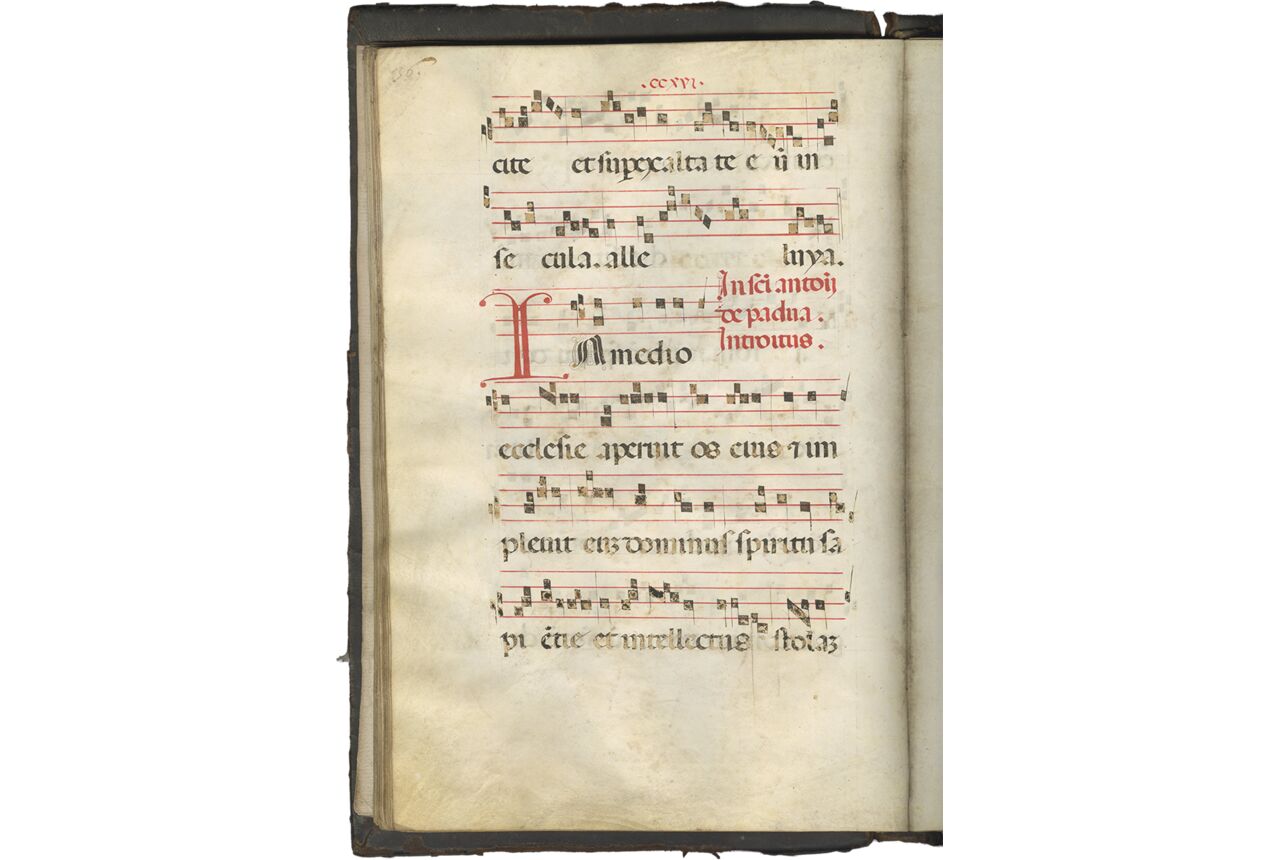 .ccxvi.
cite et sup exalta te e ū in
se cula. alle luya.
In sc̄i antoīj
de padua.
Introitus.
IN medio
ecclesie aperuit os eius ⁊ im
pleuit euꝫ dominus spiritu sa
pi ētie et intellectus stolaꝫ